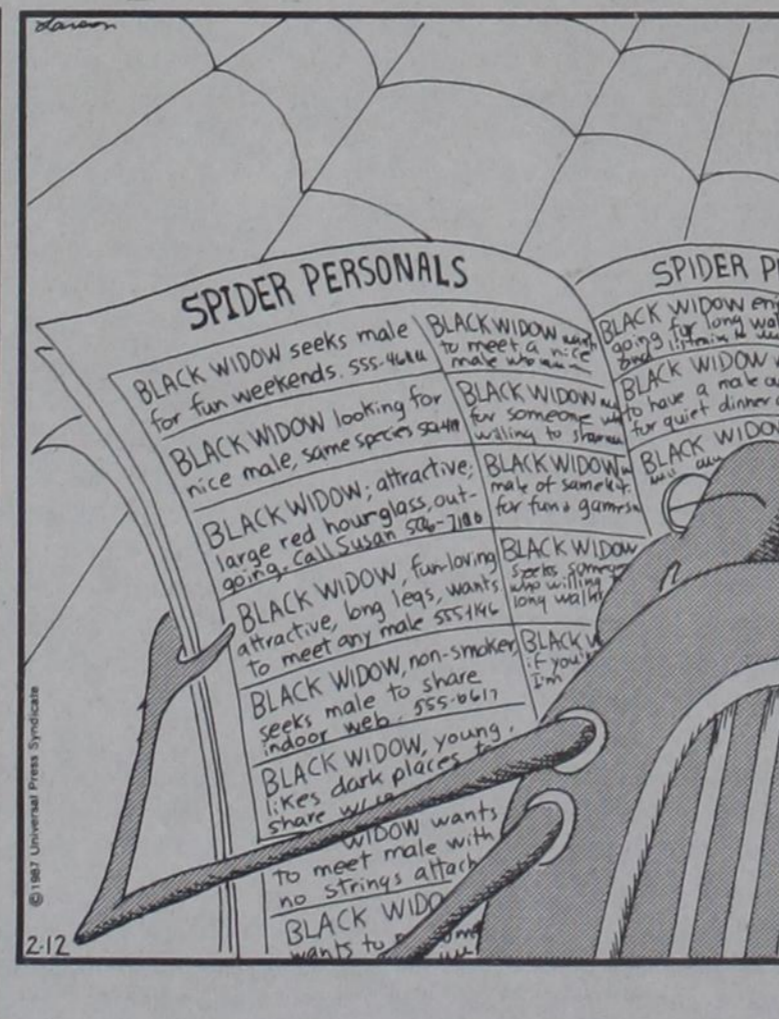 Larson
SPIDER PERSONALS
BLACK WIDOW seeks male
for fun weekends. 555-
BLACK WIDOW looking for
nice male, same species
BLACK WIDOW; attractive;
large red hourglass, out-
going. Call Susan
BLACK WIDOW, fun-loving
attractive, long legs, wants
to meet any male
BLACK WIDOW, non-smoker,
seeks male to share
indoor web. 555-0617
BLACK WIDOW, young,
likes dark places
share
WIDOW wants
to meet male with
no strings attach
BLACK WIDO
wants to
BLACK WIDOW
to meet a nice
male who
BLACK WIDOW
for someone
willing to
BLACK WIDOW
male of same
for fun & games
BLACK WIDOW
seeks
who willing
long walks
BLACK W
if you'
I'm
SPIDER P
BLACK WIDOW en
going for long wal
and
BLACK WIDOW
to have a male
for quiet dinner
BLACK WIDO
© 1987 Universal Press Syndicate
2-12